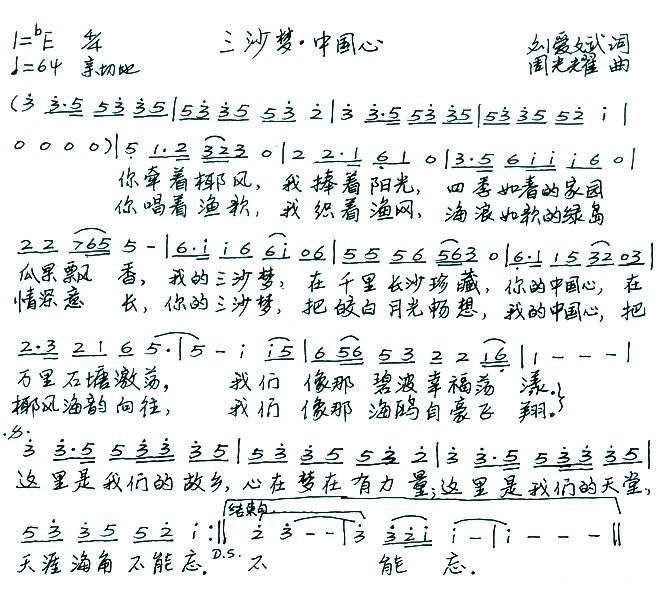 1=♭E 4/4 三沙梦·中国心 刘爱斌词
♩=64 亲切地 周光耀 曲
(3̇ 3̇·5 53̇ 3̇5|53̇ 3̇5 53̇ 2̇|3̇ 3̇·5 53̇ 3̇5|53̇ 3̇5 52̇ i|
0 0 0 0)|5 1·2 323 0|2 2·1 61 0|3·5 6ii i60|
你牵着椰风，我捧着阳光，四季如春的家园
你唱着渔歌，我织着渔网，海浪如歌的绿岛
22 765 5 -|6·i i6 6i 06|55 56 563 0|6·1 15 32 03|
瓜果飘香，我的三沙梦，在千里长沙珍藏，你的中国心，在
情深意长，你的三沙梦，把皎白月光畅想，我的中国心，把
2·3 21 6 5·|5 - i i5|6 56 53 2 2 i6|1 - - -|
万里石塘激荡， 我们 像那 碧波幸福荡 漾。}
椰风海韵向往， 我们 像那 海鸥自豪飞 翔。}
𝄋
3̇ 3̇·5 53̇3̇ 3̇5|53̇ 3̇5 53̇ 2̇|3̇ 3̇·5 53̇3̇ 3̇5|
这里是我们的故乡，心在梦在有力量；这里是我们的天堂，
结束句
53̇ 3̇5 52̇ i :‖ 2̇ 3̇ - -|3̇ 3̇2̇i i -|i - - -‖
天涯海角不能忘。 D.S. 不 能 忘.